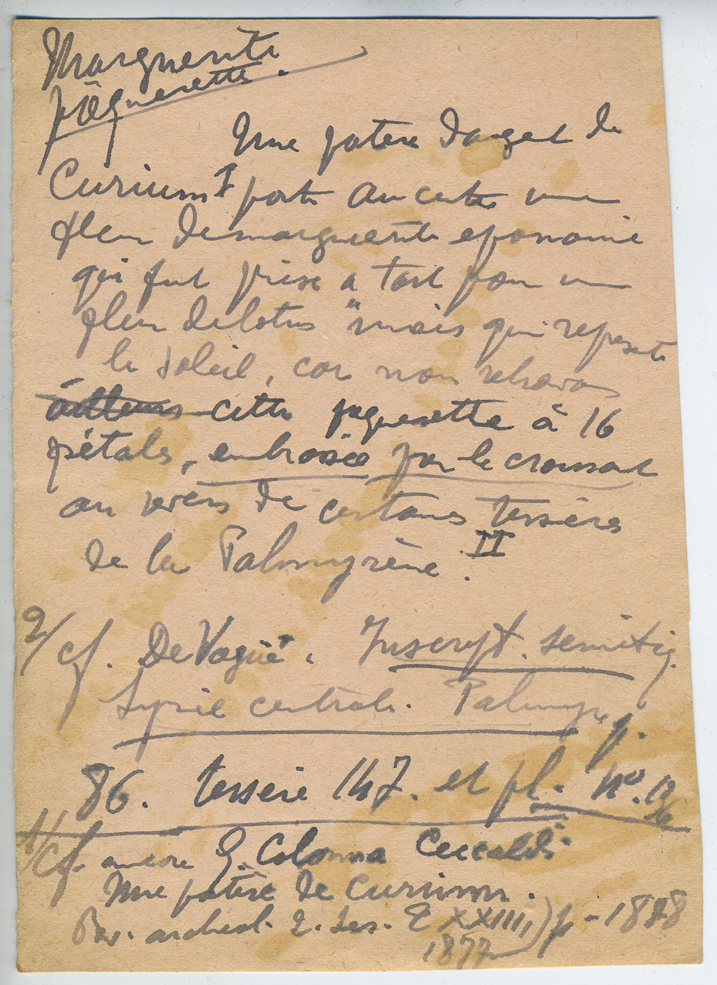 Marguerite
pâquerette.
Une patère d'argent de
Curium I porte au centre une
fleur de marguerite épanouie
qui fut prise à tort pour une
fleur de lotus "mais qui représente
le soleil, car nous retrouvons
ailleurs cette paquerette à 16
pétales, embrassée par le croissant
au revers de certaines tessères
de la Palmyrène. II
2/ cf. De Vogüé. Inscript. sémitiq.
Syrie centrale. Palmyr p.
86. tessère 147. et pl. no. 12
1/ cf. encore G. Colonna Ceccaldi
Une patère de Curium.
Rev. archéol. 2. Ser. T XXXIII, p - 1888
1877